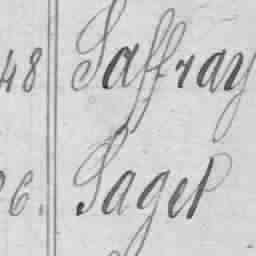 48 Saffray
6. Saget